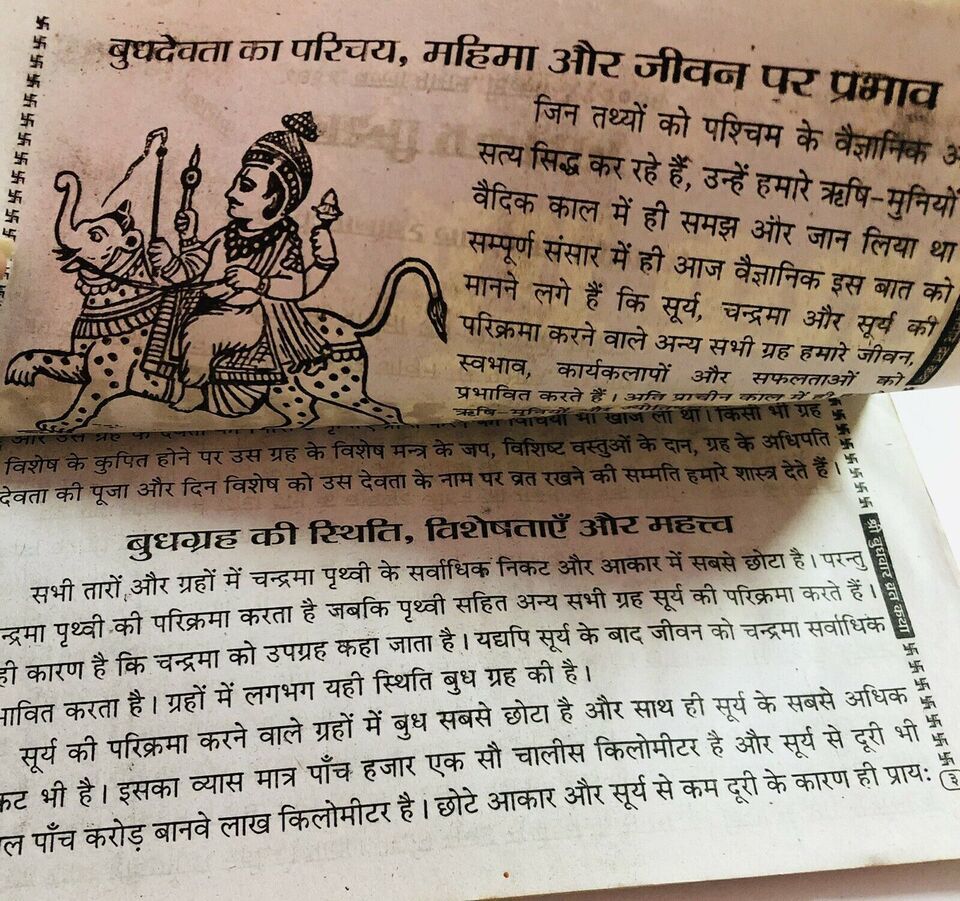 बुधदेवता का परिचय, महिमा और जीवन पर प्रभाव
जिन तथ्यों को पश्चिम के वैज्ञानिक
सत्य सिद्ध कर रहे हैं, उन्हें हमारे ऋषि-मुनियों
वैदिक काल में ही समझ और जान लिया था
सम्पूर्ण संसार में ही आज वैज्ञानिक इस बात को
मानने लगे हैं कि सूर्य, चन्द्रमा और सूर्य की
परिक्रमा करने वाले अन्य सभी ग्रह हमारे जीवन,
स्वभाव, कार्यकलापों और सफलताओं को
प्रभावित करते हैं। अति प्राचीन काल में ही
खोज ली थी। किसी भी ग्रह
विशेष के कुपित होने पर उस ग्रह के विशेष मन्त्र के जप, विशिष्ट वस्तुओं के दान, ग्रह के अधिपति
देवता की पूजा और दिन विशेष को उस देवता के नाम पर व्रत रखने की सम्मति हमारे शास्त्र देते हैं।
बुधग्रह की स्थिति, विशेषताएँ और महत्त्व
सभी तारों और ग्रहों में चन्द्रमा पृथ्वी के सर्वाधिक निकट और आकार में सबसे छोटा है। परन्तु
न्द्रमा पृथ्वी की परिक्रमा करता है जबकि पृथ्वी सहित अन्य सभी ग्रह सूर्य की परिक्रमा करते हैं।
ही कारण है कि चन्द्रमा को उपग्रह कहा जाता है। यद्यपि सूर्य के बाद जीवन को चन्द्रमा सर्वाधिक
भावित करता है। ग्रहों में लगभग यही स्थिति बुध ग्रह की है।
सूर्य की परिक्रमा करने वाले ग्रहों में बुध सबसे छोटा है और साथ ही सूर्य के सबसे अधिक
कट भी है। इसका व्यास मात्र पाँच हजार एक सौ चालीस किलोमीटर है और सूर्य से दूरी भी
ल पाँच करोड़ बानवे लाख किलोमीटर है। छोटे आकार और सूर्य से कम दूरी के कारण ही प्रायः
श्री बुधवार व्रत कथा